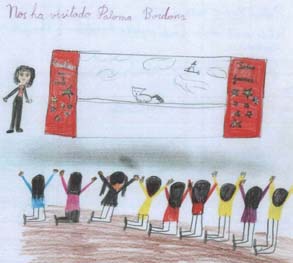 Nos ha visitado Paloma Bordons